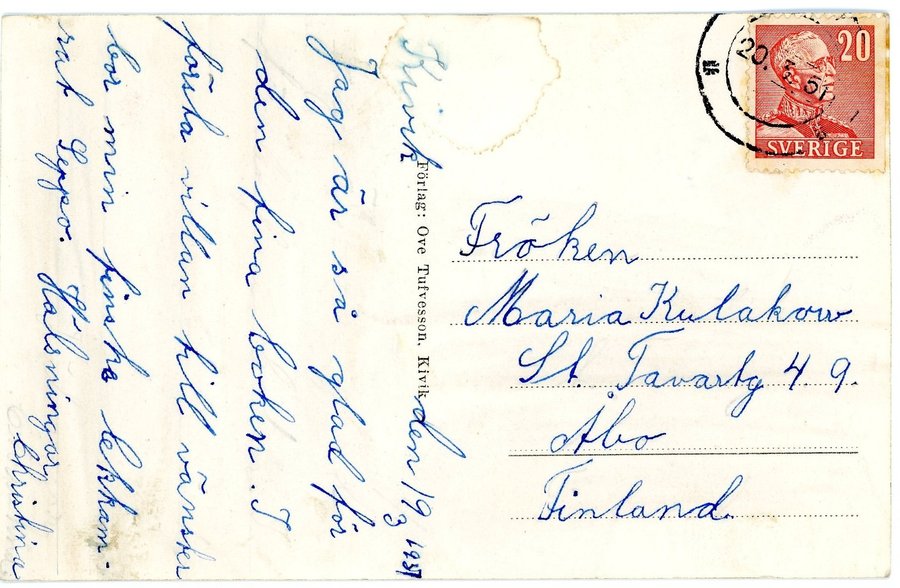 Kivik den 19/3 1951
Jag är så glad för
den fina boken. I
första villan till vänster
bor min finska lekkam-
rat Seppo. Hälsningar
Christina
Förlag: Ove Tufvesson, Kivik
20
SVERIGE
20. 3. 51
Fröken
Maria Kulakow
St. Tavartg 4. 9.
Åbo
Finland.